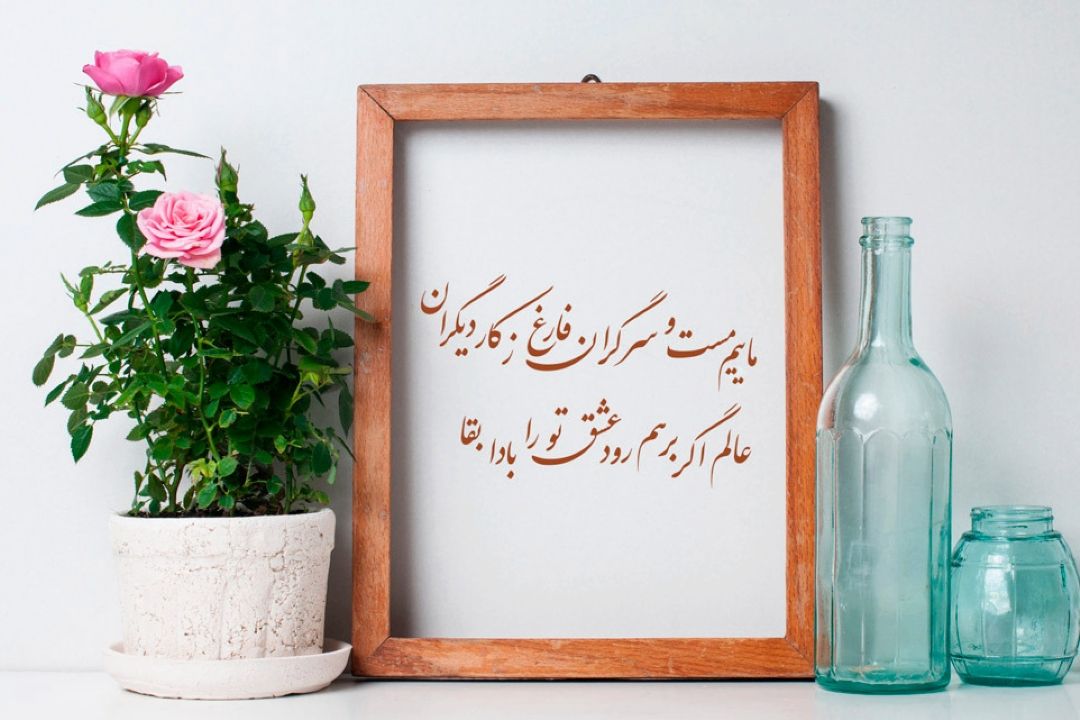 ماییم مست و سرگران فارغ ز کار دیگران
عالم اگر برهم رود عشق تو را بادا بقا